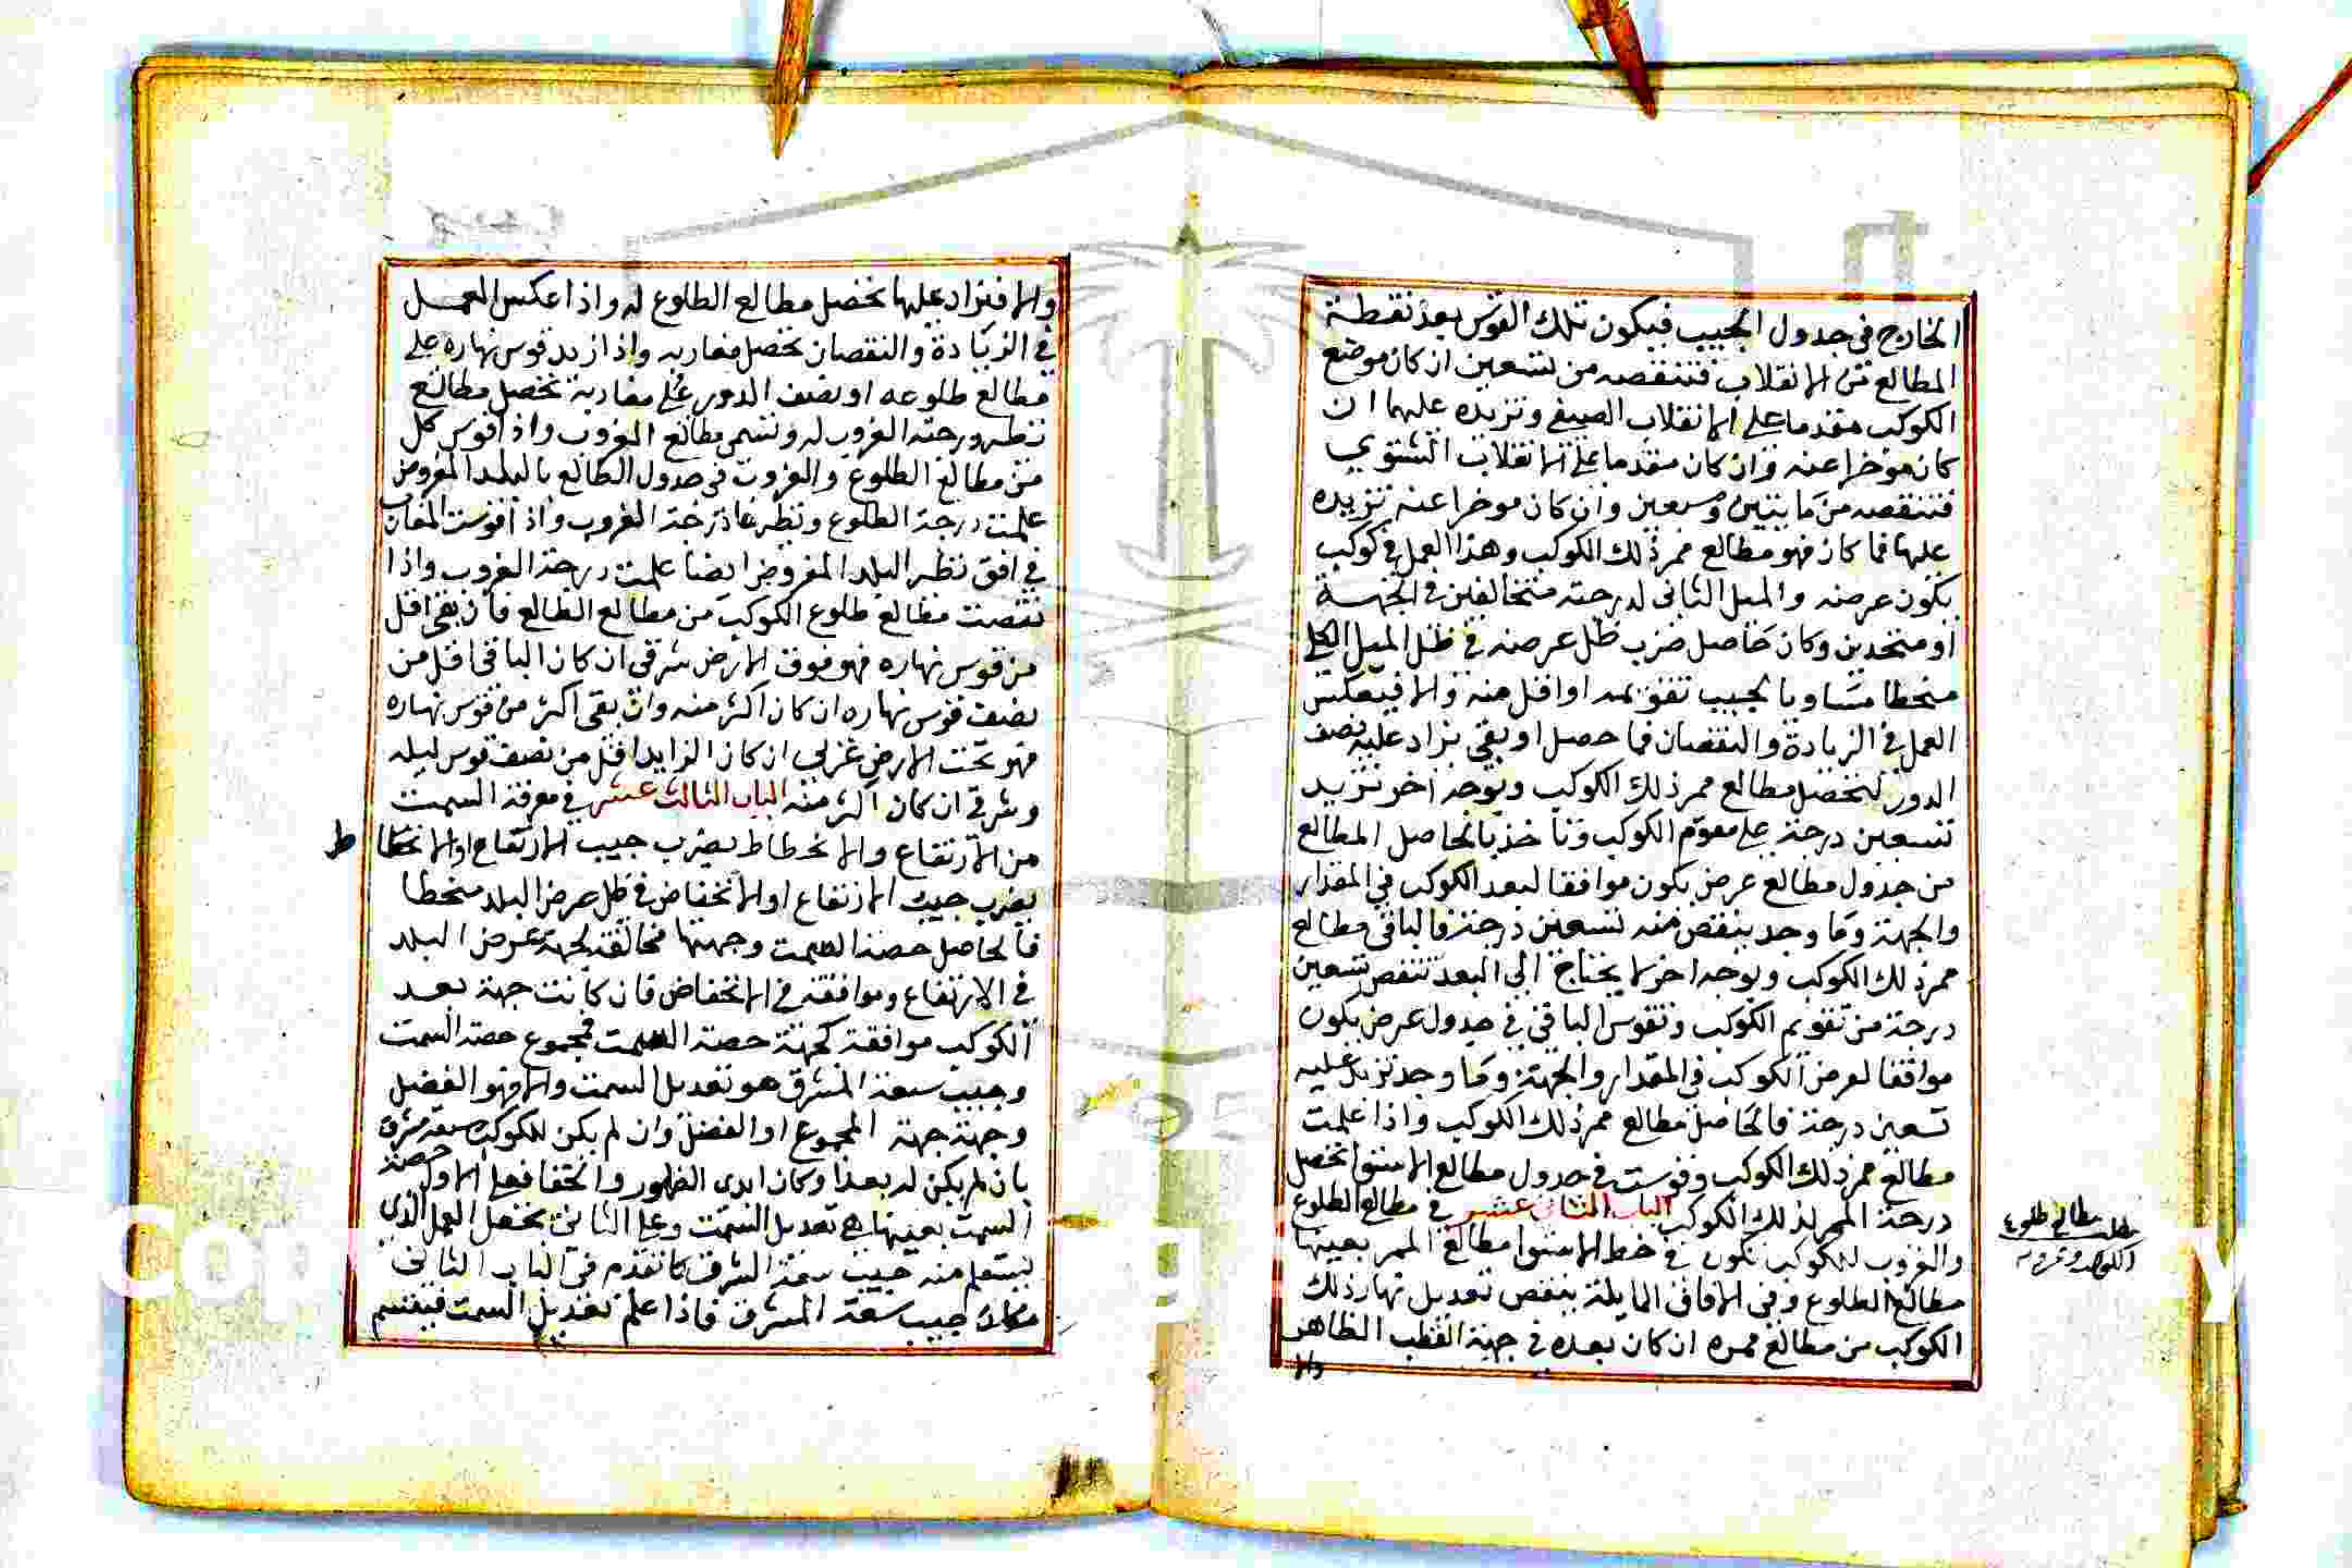 الخارج في جدول الجيب فيكون تلك القوس بعد نقطة
المطالع من الانقلاب فتنقصه من تسعين ان كان موضع
الكوكب متقدما على الانقلاب الصيفي وتزيده عليها ان
كان موخرا عنه وان كان متقدما على الانقلاب الشتوي
فتنقصه من مايتين وسبعين وان كان موخرا عنه تزيده
عليها فما كان فهو مطالع ممر ذلك الكوكب وهذا العمل في كوكب
يكون عرضه والميل الثاني لدرجته متخالفين في الجهة
او متحدين وكان حاصل ضرب ظل عرضه في ظل الميل الكلي
منحطا مساويا لجيب تقويمه او اقل منه والا فيعكس
العمل في الزيادة والنقصان فما حصل او بقي يزاد عليه نصف
الدور ليحصل مطالع ممر ذلك الكوكب وبوجه اخر تزيد
تسعين درجة على مقوم الكوكب وتاخذ بالحاصل المطالع
من جدول مطالع عرض يكون موافقا لبعد الكوكب في المقدار
والجهة وما وجد ينقص منه تسعين درجة فالباقي مطالع
ممر ذلك الكوكب وبوجه اخر لا يحتاج الى البعد تنقص تسعين
درجة من تقويم الكوكب وتقوس الباقي في جدول عرض يكون
موافقا لعرض الكوكب في المقدار والجهة وما وجد تزيد عليه
تسعين درجة فالحاصل مطالع ممر ذلك الكوكب واذا علمت
مطالع ممر ذلك الكوكب وقوست في جدول مطالع الاستوا تحصل
درجة الممر لذلك الكوكب الباب الثاني عشر في مطالع الطلوع
والغروب للكوكب تكون في خط الاستوا مطالع الممر بعينها
مطالع الطلوع وفي الافاق المايلة ينقص تعديل نهار ذلك
الكوكب من مطالع ممره ان كان بعده في جهة القطب الظاهر
والا
مطالع طلوع
الكوكب وغروبه
والا فيزاد عليها تحصل مطالع الطلوع له واذا عكس العمل
في الزيادة والنقصان تحصل مغاربه واذا زيد قوس نهاره على
مطالع طلوعه او نصف الدور على مغاربه تحصل مطالع
نظير درجة الغروب له وتسمى مطالع الغروب واذا قوس كل
من مطالع الطلوع والغروب في جدول الطالع بالبلد المفروض
علمت درجة الطلوع ونظير درجة الغروب واذا قوست المغارب
في افق نظير البلد المفروض ايضا علمت درجة الغروب واذا
نقصت مطالع طلوع الكوكب من مطالع الطالع فان بقي اقل
من قوس نهاره فهو فوق الارض شرقي ان كان الباقي اقل من
نصف قوس نهاره ان كان اكثر منه وان بقي اكثر من قوس نهاره
فهو تحت الارض غربي ان كان الزايد اقل من نصف قوس ليله
وشرقي ان كان اكثر منه الباب الثالث عشر في معرفة السمت
من الارتفاع والانحطاط يضرب جيب الارتفاع او الانحطا ط
يضرب جيب الارتفاع او الانخفاض في ظل عرض البلد منحطا
فالحاصل حصة السمت وجهتها مخالفة لجهة عرض البلد
في الارتفاع وموافقة في الانخفاض فان كانت جهة بعد
الكوكب موافقة لجهة حصة السمت فمجموع حصة السمت
وجيب سعة المشرق هو تعديل السمت والا فهو الفضل
وجهته جهة المجموع او الفضل وان لم يكن للكوكب سعة مشرق
بان لم يكن له بعد او كان ابدي الظهور والخفا فعلى الاول حصة
السمت بعينها هي تعديل السمت وعلى الثاني يحصل العمل الذي
يستعلم منه جيب سعة المشرق كما تقدم في الباب الثاني
مكان جيب سعة المشرق فاذا علم تعديل السمت فيقسم